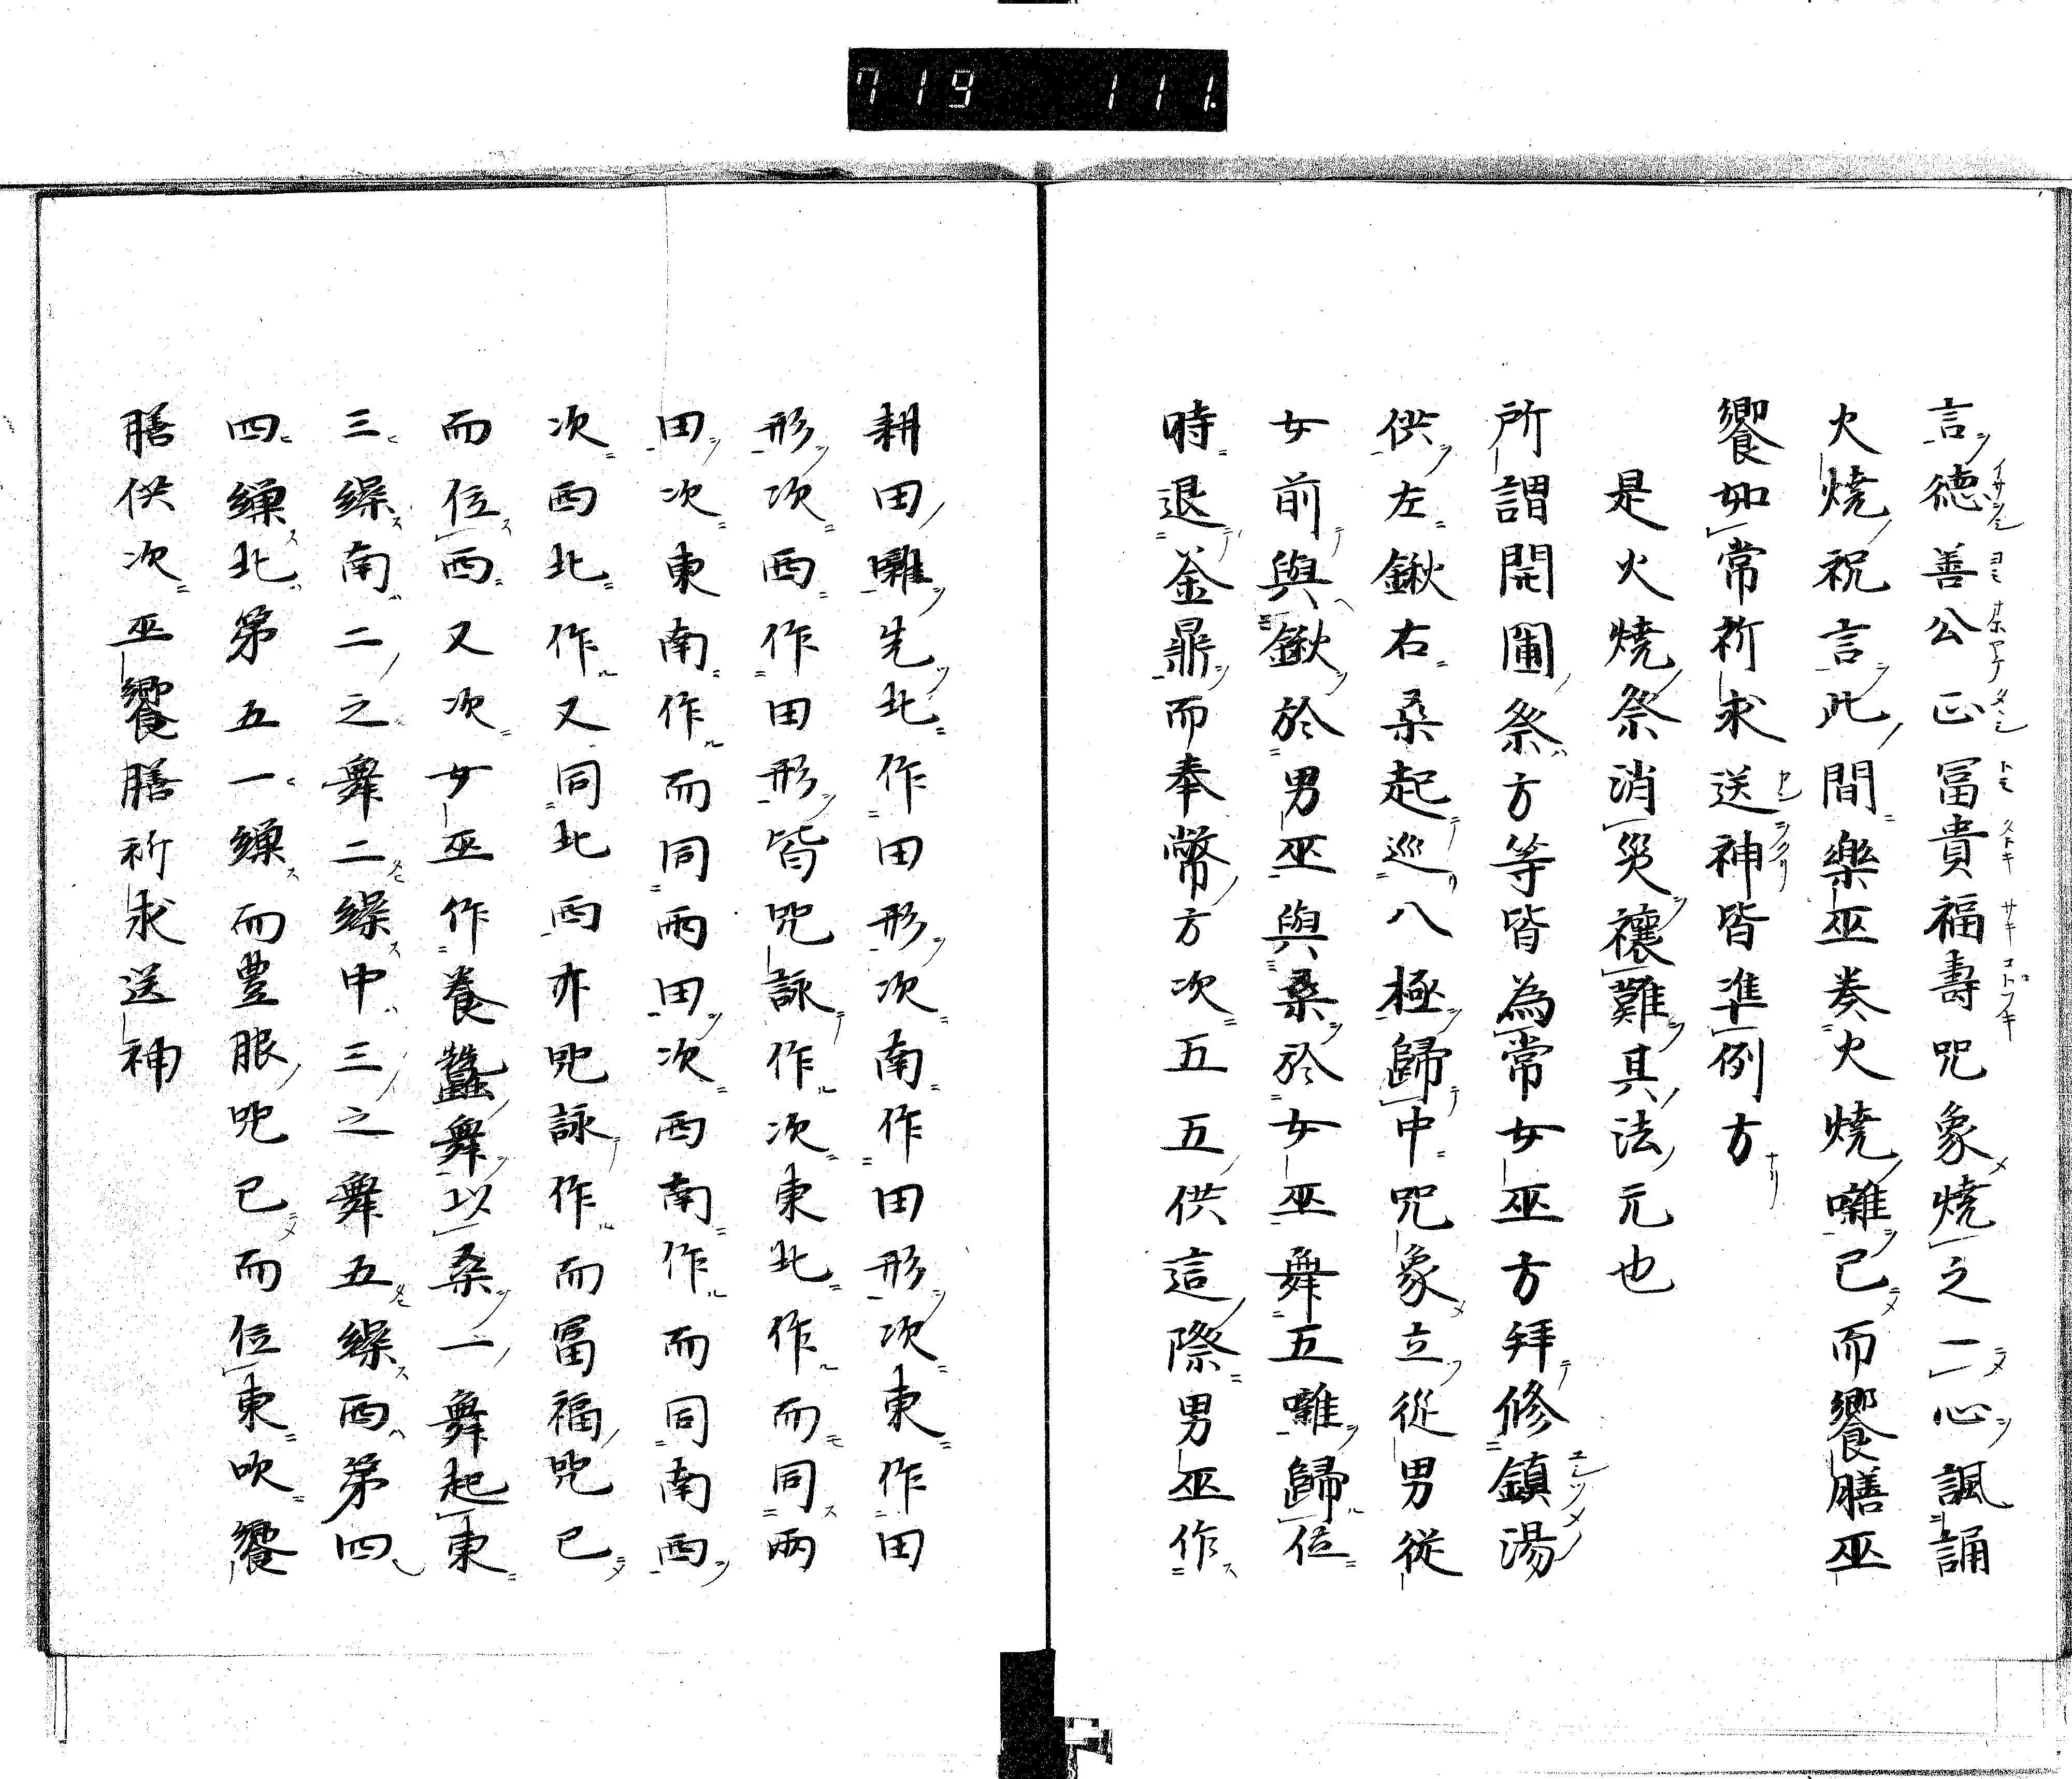 719 111.
言德善公正冨貴福壽咒象燒之一心諷誦
火燒祝言此間樂巫奏火燒囃已而饗膳巫
饗如常祈求送神皆準例方
是火燒祭消災禳難其法元也
所謂開圃祭方等皆為常女巫方拜修鎮湯
供左鍬右桑起巡八極歸中咒象立從男從
女前與鍬於男巫與桑於女巫舞五囃歸位
時退釜鼎而奉幣方次五五供這際男巫作
耕田囃先北作田形次南作田形次東作田
形次西作田形皆咒詠作次東北作而同兩
田次東南作而同兩田次西南作而同南西
次西北作又同北西亦咒詠作而冨福咒已
而位西又次女巫作養蠶舞以桑一舞起東
三繰南二之舞二繰中三之舞五繰西第四
四繅北第五一繅而豊服咒已而位東吹饗
膳供次巫饗膳祈求送神